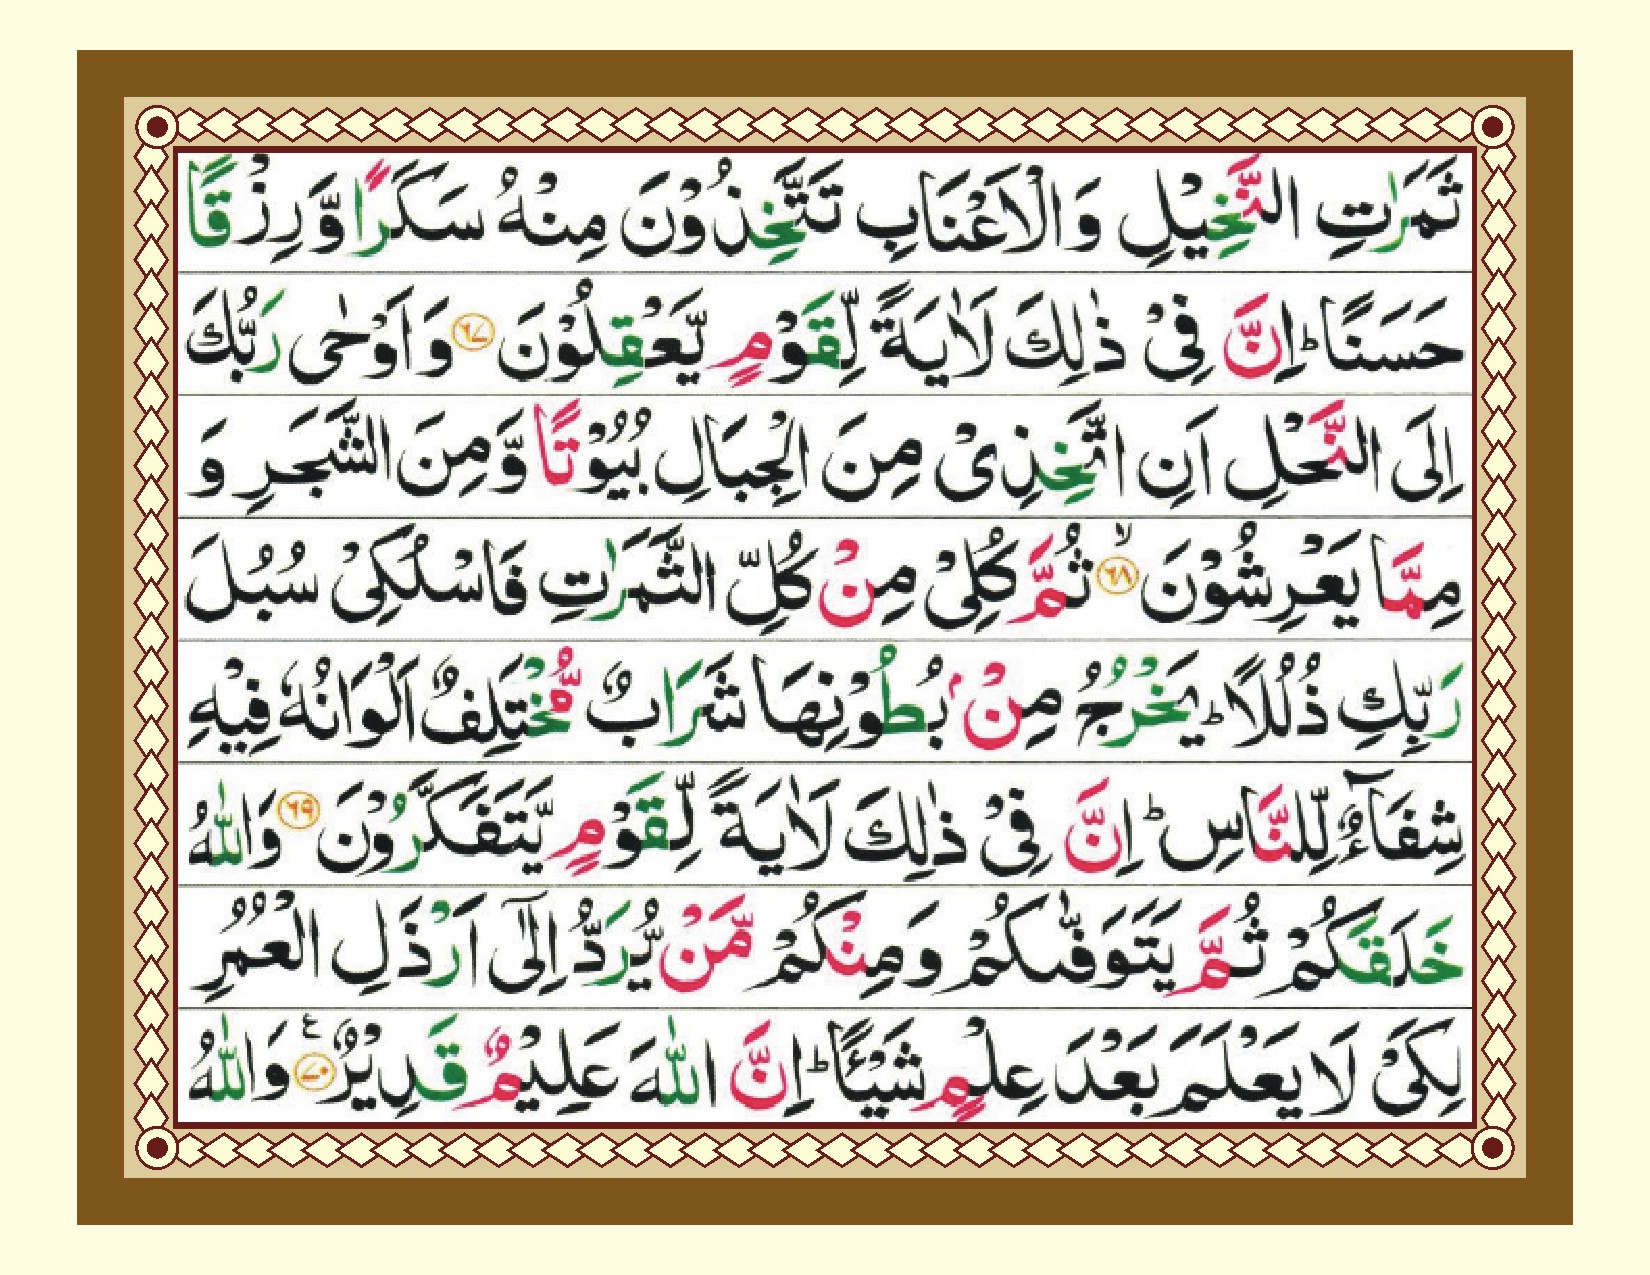 ثَمَرٰتِ النَّخِيْلِ وَالْاَعْنَابِ تَتَّخِذُوْنَ مِنْهُ سَكَرًا وَّرِزْقًا
حَسَنًا ؕ اِنَّ فِيْ ذٰلِكَ لَاٰيَةً لِّقَوْمٍ يَّعْقِلُوْنَ ﴿۶۷﴾ وَاَوْحٰى رَبُّكَ
اِلَى النَّحْلِ اَنِ اتَّخِذِىْ مِنَ الْجِبَالِ بُيُوْتًا وَّمِنَ الشَّجَرِ وَ
مِمَّا يَعْرِشُوْنَ ﴿۶۸﴾ۙ ثُمَّ كُلِىْ مِنْ كُلِّ الثَّمَرٰتِ فَاسْلُكِىْ سُبُلَ
رَبِّكِ ذُلُلًا ؕ يَخْرُجُ مِنْۢ بُطُوْنِهَا شَرَابٌ مُّخْتَلِفٌ اَلْوَانُهٗ فِيْهِ
شِفَآءٌ لِّلنَّاسِ ؕ اِنَّ فِيْ ذٰلِكَ لَاٰيَةً لِّقَوْمٍ يَّتَفَكَّرُوْنَ ﴿۶۹﴾ وَاللّٰهُ
خَلَقَكُمْ ثُمَّ يَتَوَفّٰىكُمْ وَمِنْكُمْ مَّنْ يُّرَدُّ اِلٰٓى اَرْذَلِ الْعُمُرِ
لِكَىْ لَا يَعْلَمَ بَعْدَ عِلْمٍ شَيْـًٔا ؕ اِنَّ اللّٰهَ عَلِيْمٌ قَدِيْرٌ ﴿۷۰﴾ ع وَاللّٰهُ